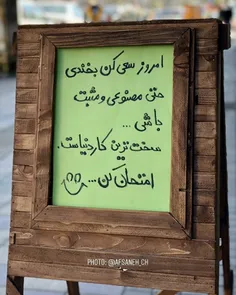 امروز سعی کن بخندی
حتی مصنوعی و مثبت
باشی ...
سخت ترین کار دنیاست.
امتحان کن ...
PHOTO: @AFSANEH.CH